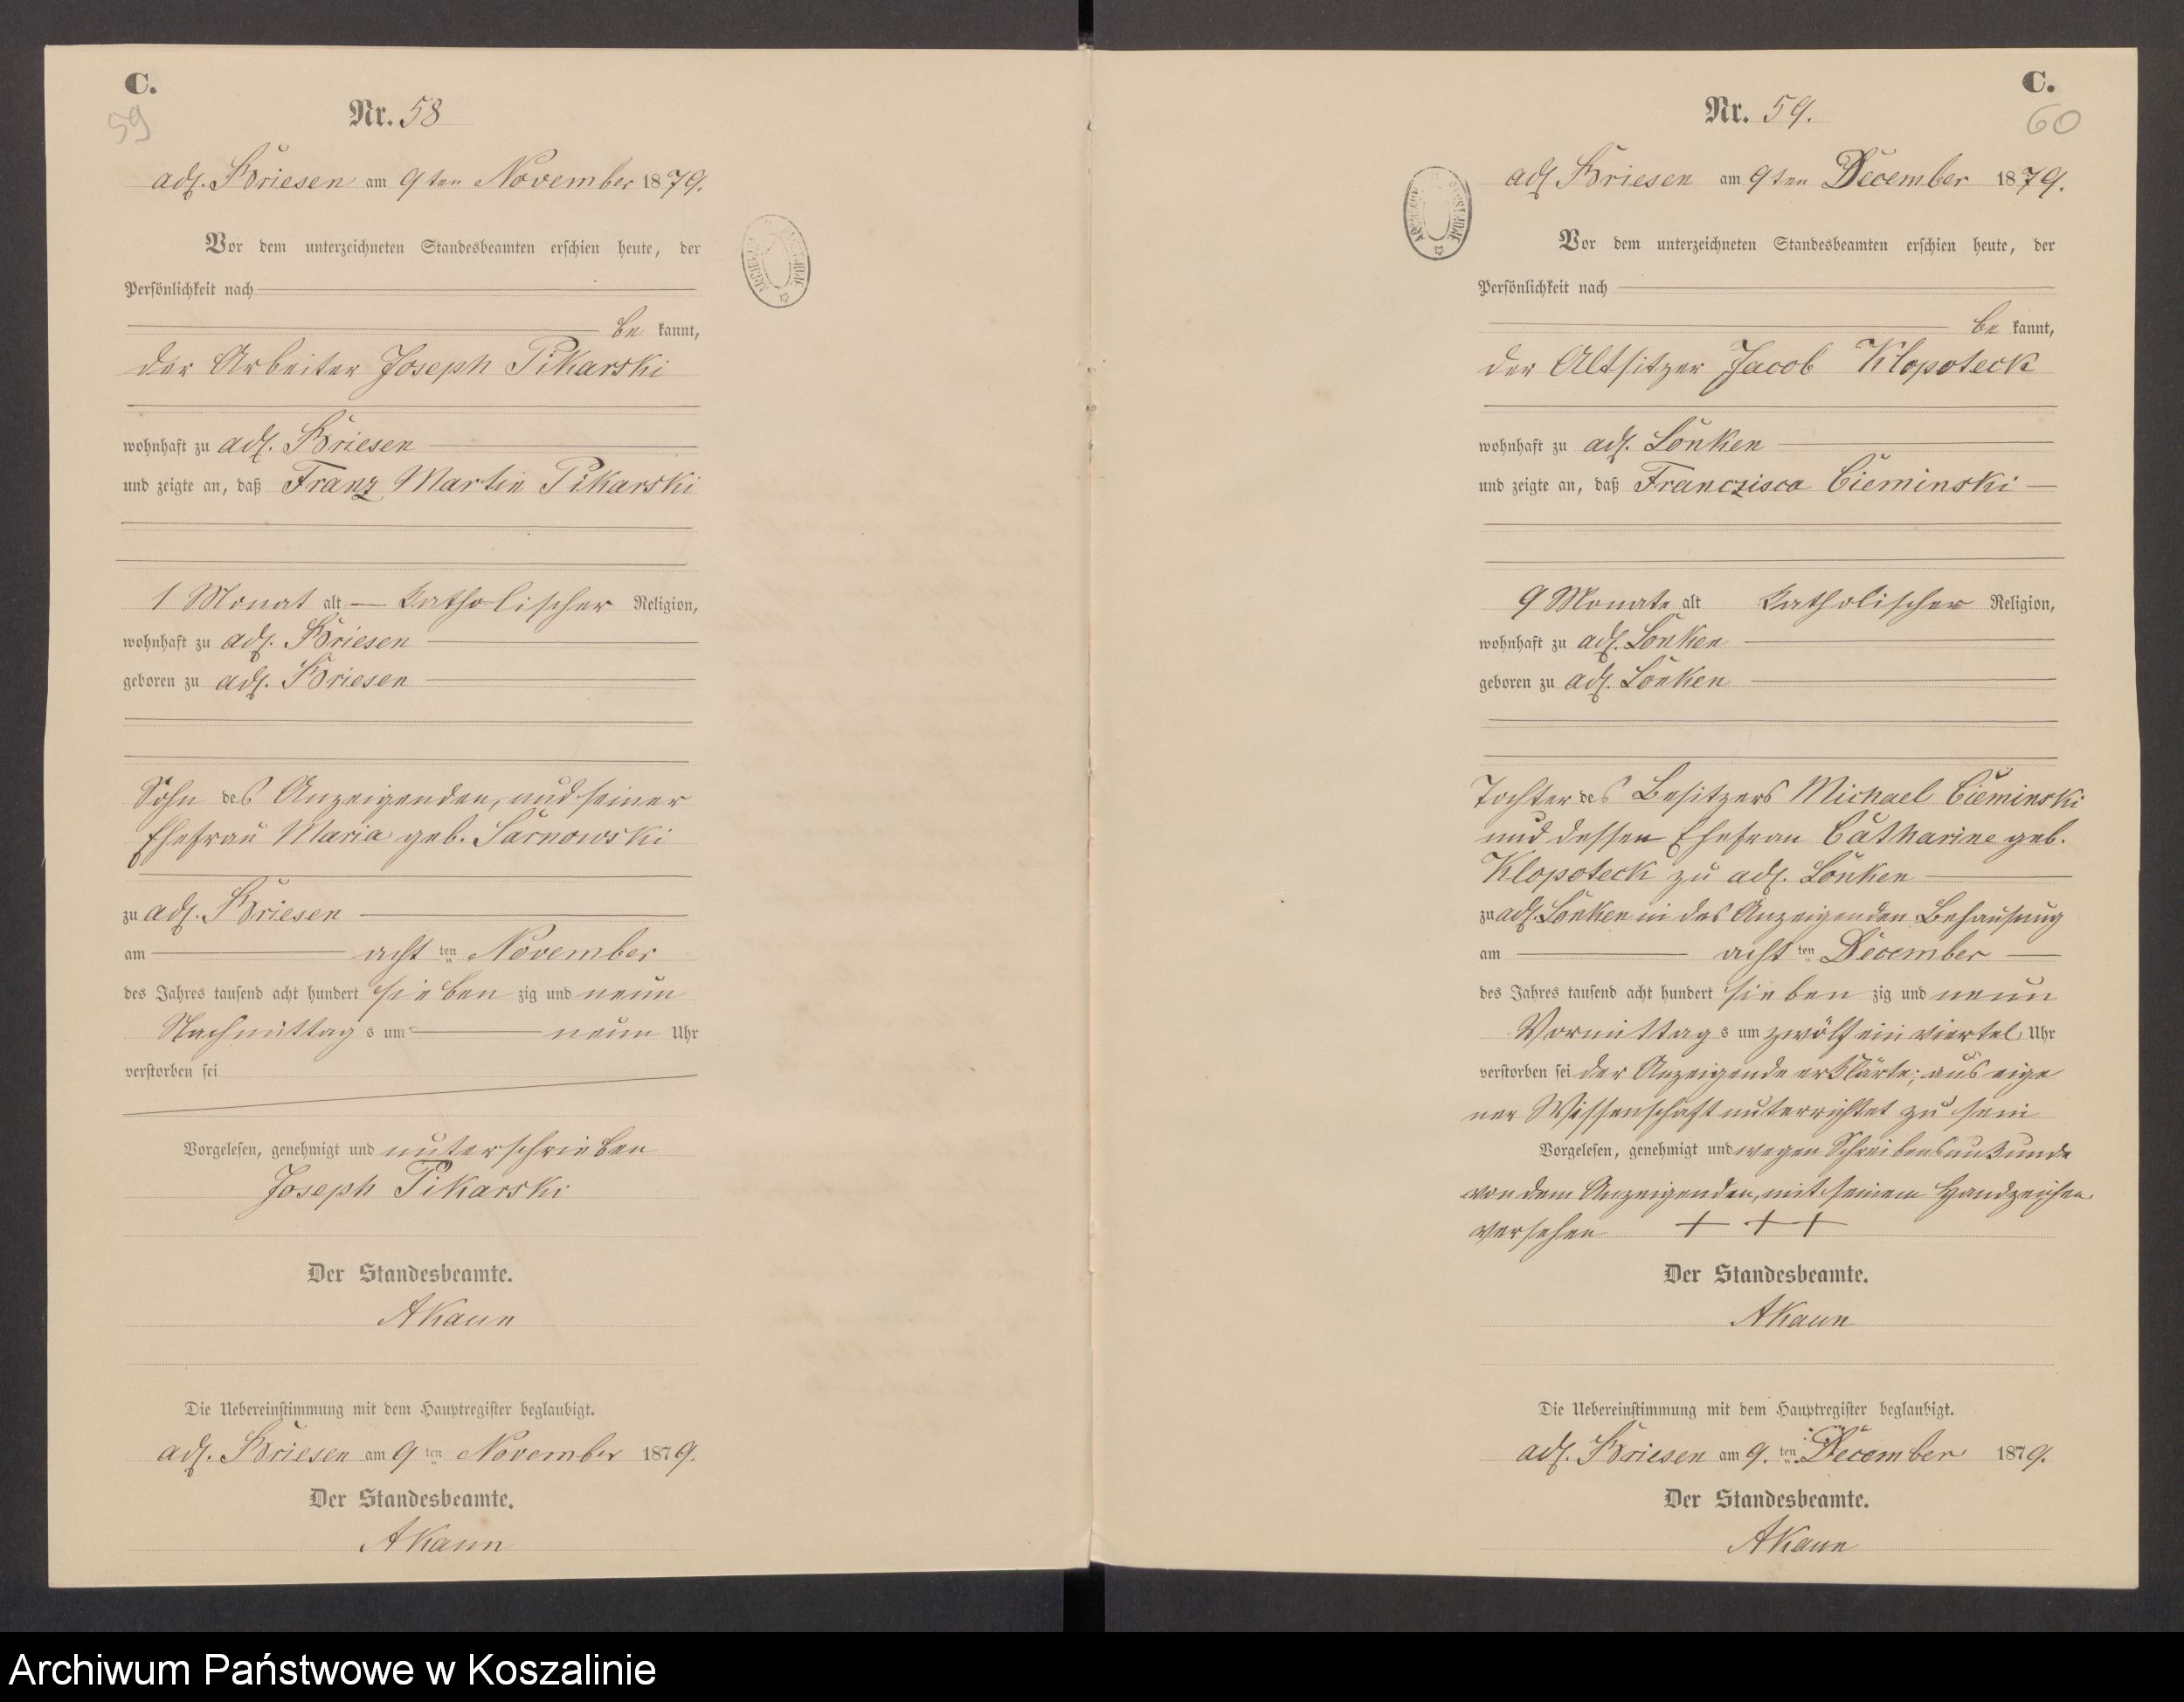 C.
59
Nr. 58
adl. Briesen am 9ten November 1879.
Vor dem unterzeichneten Standesbeamten erschien heute, der
Persönlichkeit nach
be kannt,
der Arbeiter Joseph Pikarski
wohnhaft zu adl. Briesen
und zeigte an, daß Franz Martin Pikarski
1 Monat alt katholischer Religion,
wohnhaft zu adl. Briesen
geboren zu adl. Briesen
Sohn des Anzeigenden, und seiner
Ehefrau Maria geb. Sarnowski
zu adl. Briesen
am acht ten November
des Jahres tausend acht hundert sieben zig und neun
Nachmittag s um neun Uhr
verstorben sei
Vorgelesen, genehmigt und unterschrieben
Joseph Pikarski
Der Standesbeamte.
AKaun
Die Uebereinstimmung mit dem Hauptregister beglaubigt.
adl. Briesen am 9 ten November 1879.
Der Standesbeamte.
AKaun
C.
60
Nr. 59.
adl Briesen am 9ten December 1879.
Vor dem unterzeichneten Standesbeamten erschien heute, der
Persönlichkeit nach
be kannt,
der Altsitzer Jacob Klopoteck
wohnhaft zu adl. Lonken
und zeigte an, daß Franczisca Cieminski
9 Monate alt katholischer Religion,
wohnhaft zu adl. Lonken
geboren zu adl. Lonken
Tochter des Besitzers Michael Cieminski
und dessen Ehefrau Catharine geb.
Klopoteck zu adl. Lonken
zu adl. Lonken in des Anzeigenden Behausung
am acht ten December
des Jahres tausend acht hundert sieben zig und neun
Vormittag s um zwölf ein viertel Uhr
verstorben sei der Anzeigende erklärte; aus eige
ner Wissenschaft unterrichtet zu sein
Vorgelesen, genehmigt und wegen Schreibensunkunde
von dem Anzeigenden, mit seinem Handzeichen
versehen + + +
Der Standesbeamte.
AKaun
Die Uebereinstimmung mit dem Hauptregister beglaubigt.
adl. Briesen am 9. ten December 1879.
Der Standesbeamte.
AKaun
Archiwum Państwowe w Koszalinie